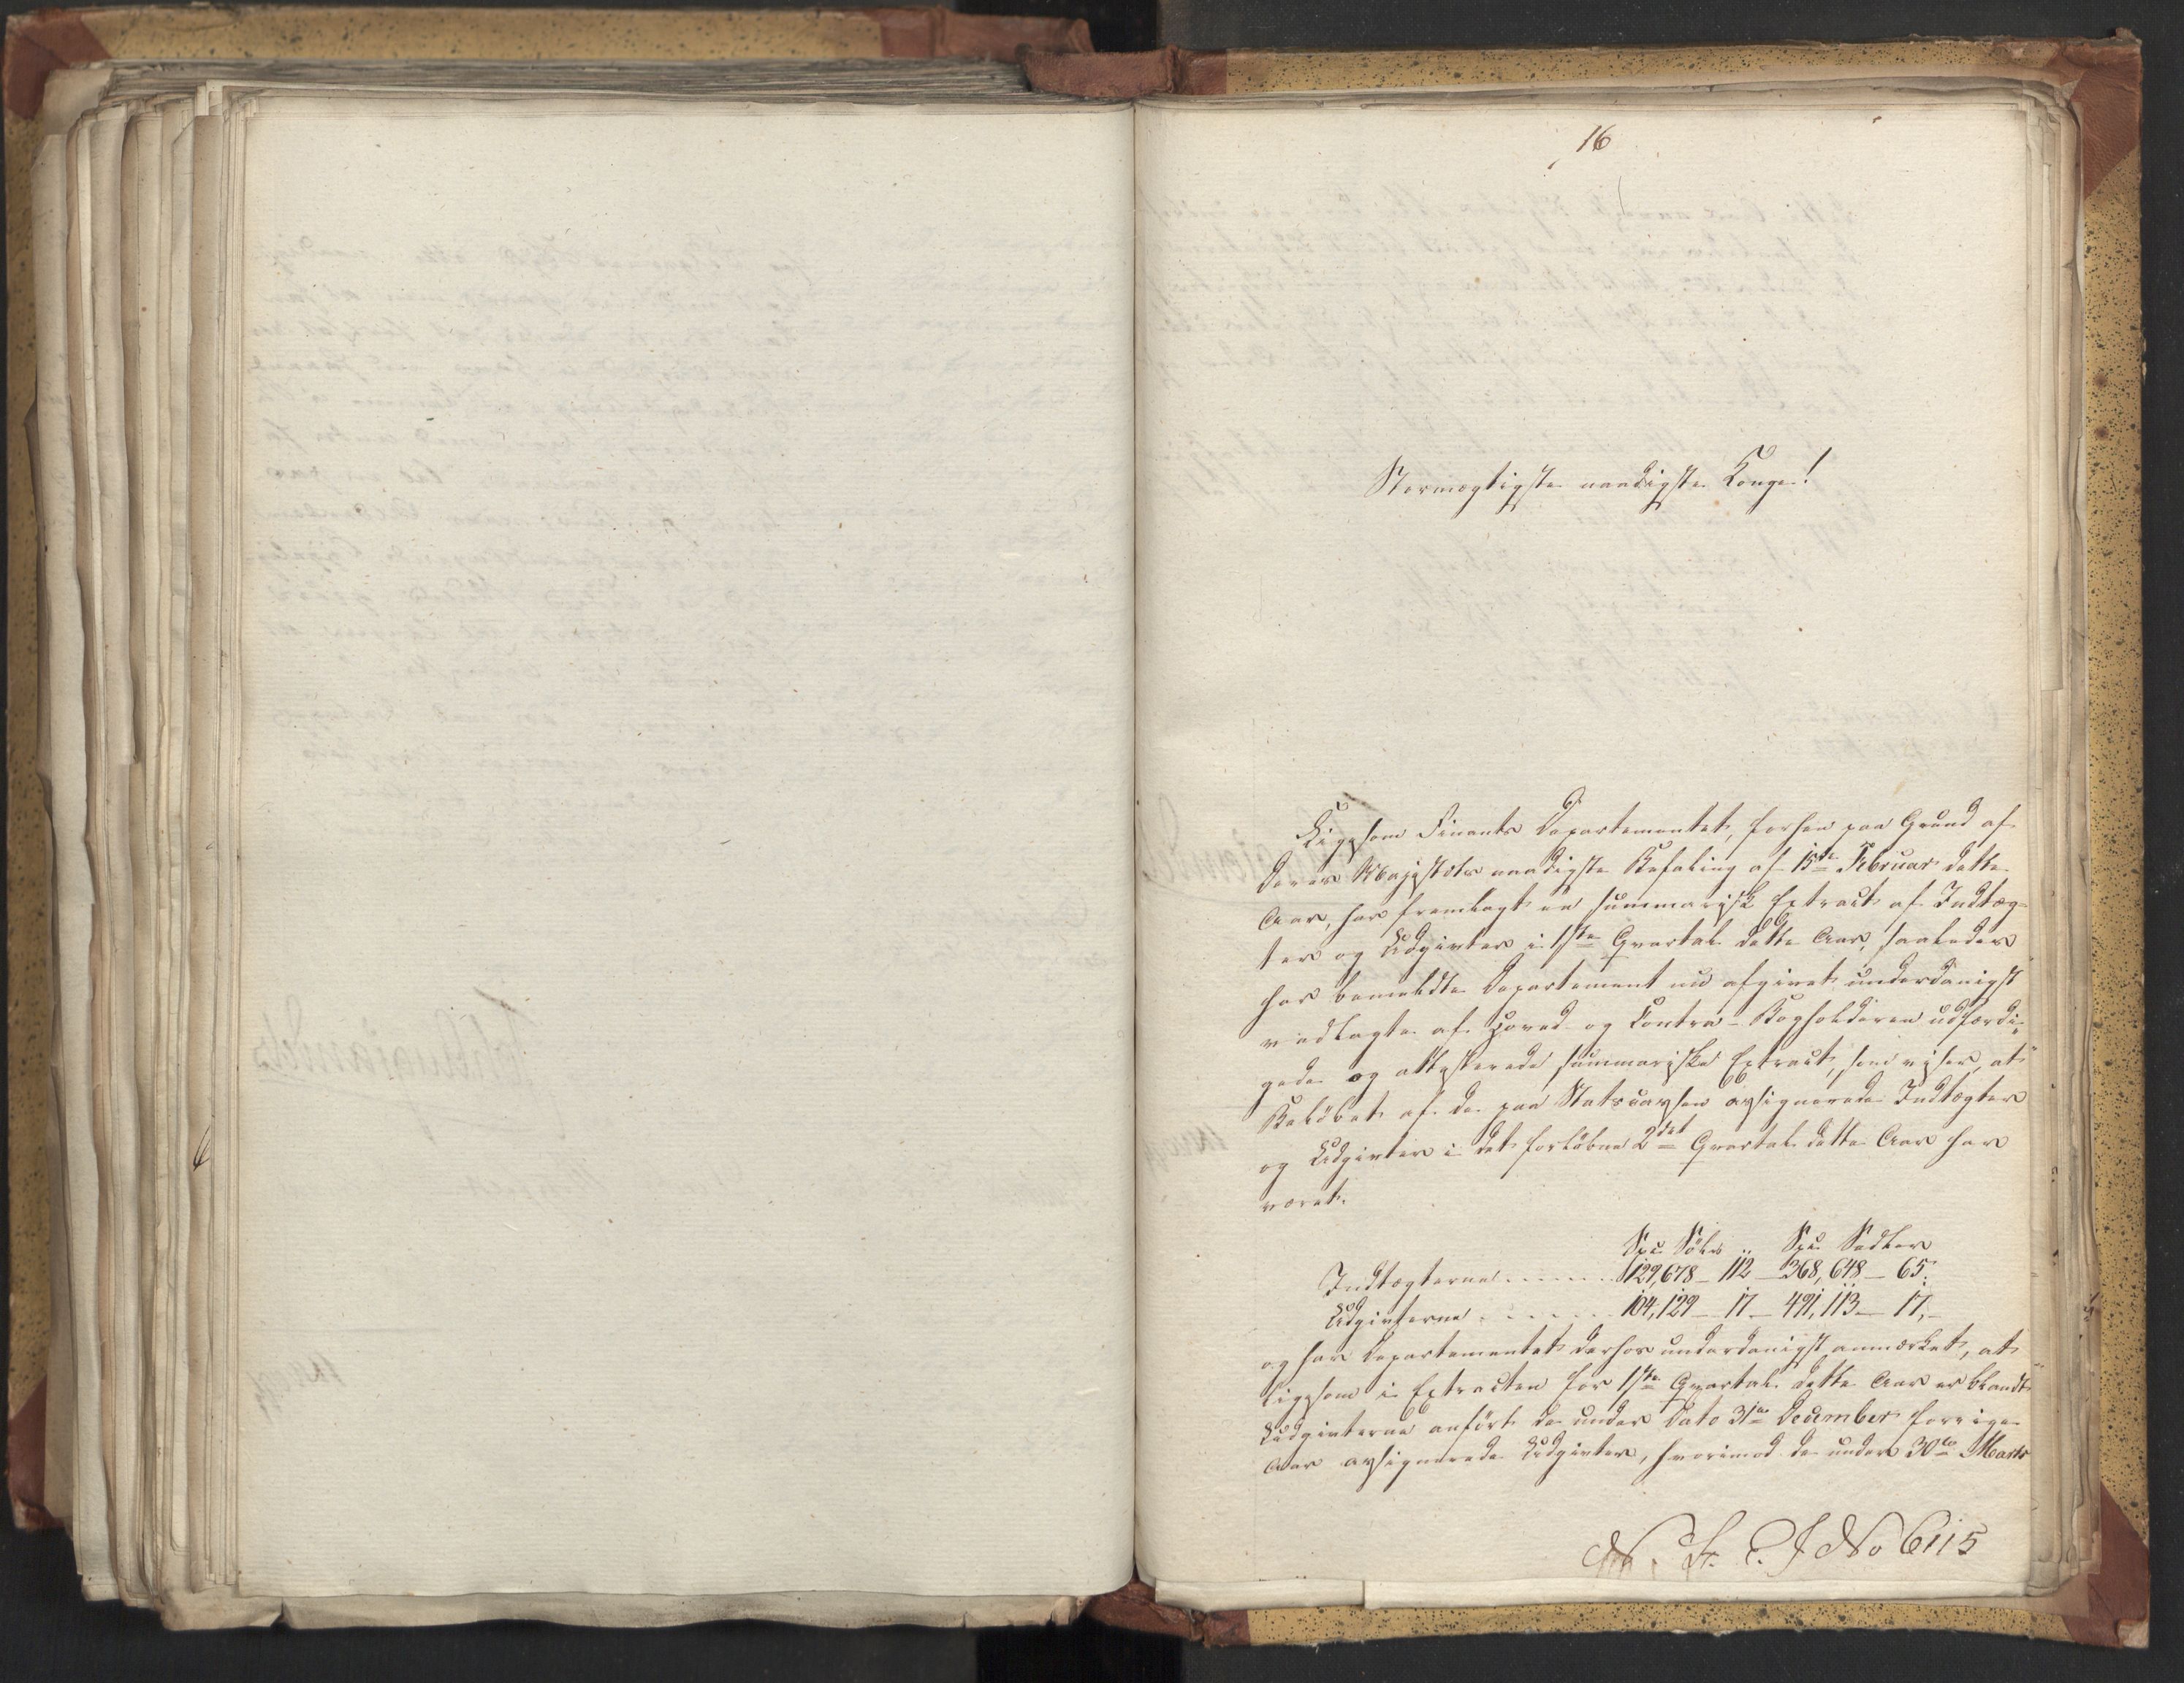 16
Stormægtigste naadigste Konge!
Ligesom Finants Departementet, forhen paa Grund af
Deres Majestæts naadigste Befaling af 15de Februar dette
Aar, har fremlagt en summarisk Extract af Indtæg-
ter og Udgivter i 1ste Qvartal dette Aar, saaledes
har bemeldte Departement nu afgivet underdanigst
vedlagte af Hoved- og Contra-Bogholderen udfærdi-
gede og attesterede summariske Extract, som viser, at
Beløbet af de paa Statscassen assignerede Indtægter
og Udgivter i det forløbne 2det Qvartal dette Aar har
været:
Spc. Sølv " Spc. Sedler
Indtægterne ...... 129,678 - 112 - 368,648 - 65.
Udgivterne ...... 104,129 - 17 - 491,113 - 17.
og har Departementet derhos underdanigst anmærket, at
ligesom i Extracten for 1ste Qvartal dette Aar er blandt
Udgivterne anført de under Dato 31te December forrige
Aar assignerede Udgivter, hvorimod de under 30te Marts
No 6115